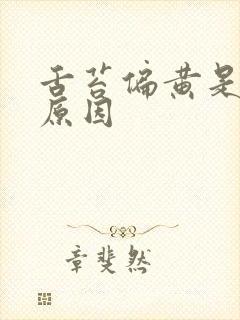 舌苔偏黄是
原因
章斐然